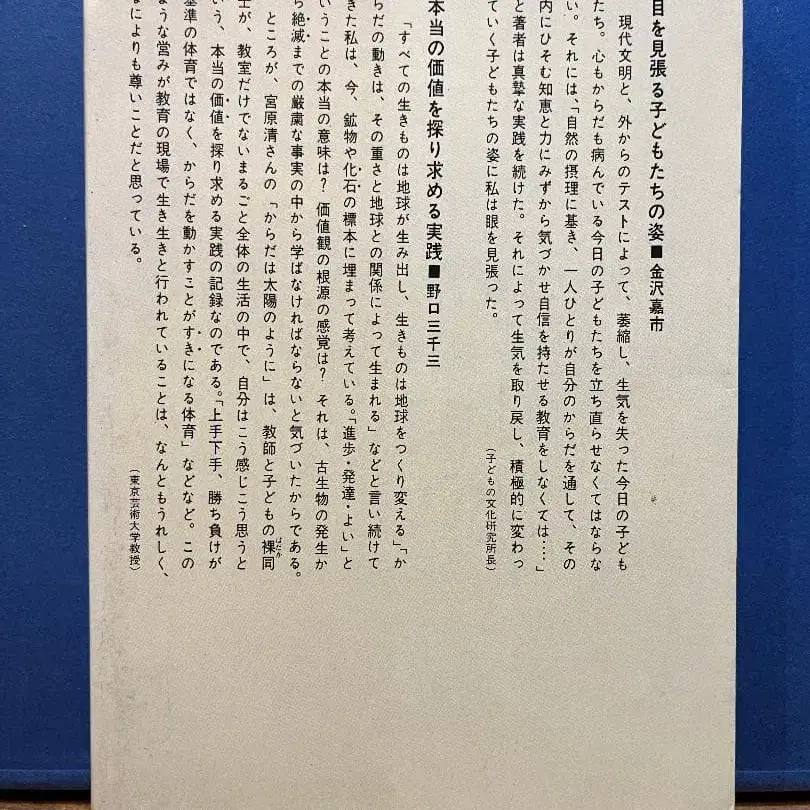 目を見張る子どもたちの姿■金沢嘉市
現代文明と、外からのテストによって、萎縮し、生気を失った今日の子ども
たち。心もからだも病んでいる今日の子どもたちを立ち直らせなくてはならな
い。それには、「自然の摂理に基き、一人ひとりが自分のからだを通して、その
内にひそむ知恵と力にみずから気づかせ自信を持たせる教育をしなくては……」
と著者は真摯な実践を続けた。それによって生気を取り戻し、積極的に変わっ
ていく子どもたちの姿に私は眼を見張った。
(子どもの文化研究所長)
本当の価値を探り求める実践■野口三千三
「すべての生きものは地球が生み出し、生きものは地球をつくり変える」「か
らだの動きは、その重さと地球との関係によって生まれる」などと言い続けて
きた私は、今、鉱物や化石の標本に埋まって考えている。「進歩・発達・よい」と
いうことの本当の意味は?価値観の根源の感覚は?それは、古生物の発生か
ら絶滅までの厳粛な事実の中から学ばなければならないと気づいたからである。
ところが、宮原清さんの「からだは太陽のように」は、教師と子どもの裸同
士が、教室だけでないまるごと全体の生活の中で、自分はこう感じこう思うと
いう、本当の価値を探り求める実践の記録なのである。「上手下手、勝ち負けが
基準の体育ではなく、からだを動かすことがすきになる体育」などなど。この
ような営みが教育の現場で生き生きと行われていることは、なんともうれしく、
なによりも尊いことだと思っている。
(東京芸術大学教授)